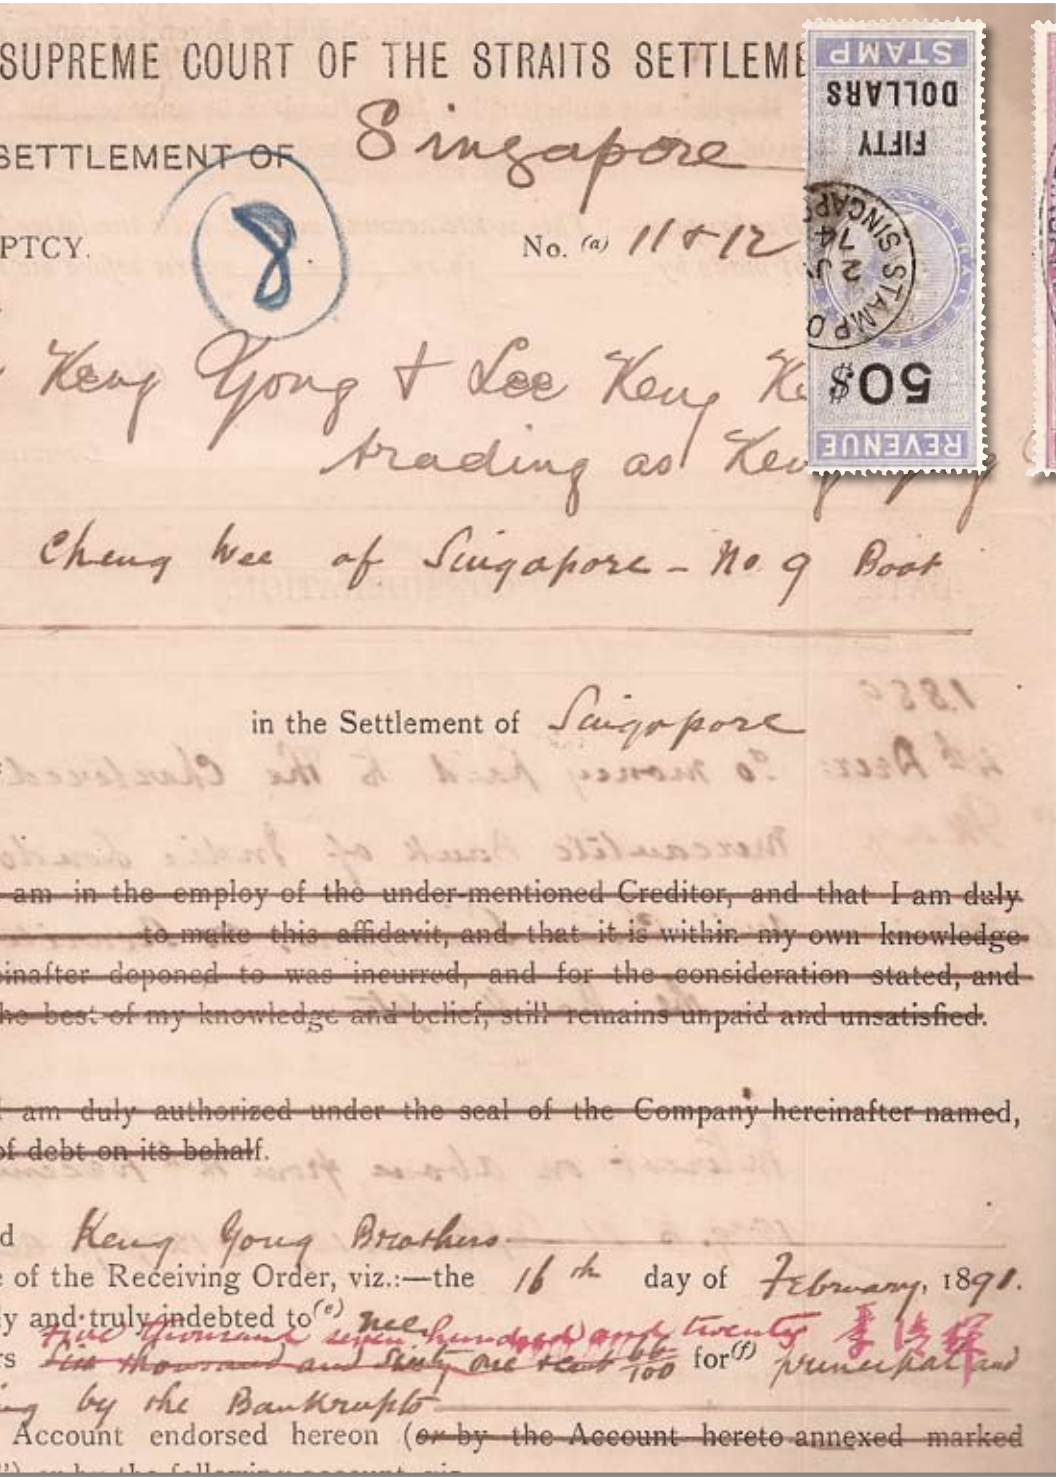 SUPREME COURT OF THE STRAITS SETTLEME
SETTLEMENT OF Singapore
8
PTCY. No. (a) 11 & 12
Keng Yong & Lee Keng
trading as Keng
Cheng Wee of Singapore - No. 9 Boat
in the Settlement of Singapore
am in the employ of the under-mentioned Creditor, and that I am duly
to make this affidavit, and that it is within my own knowledge
inafter deponed to was incurred, and for the consideration stated, and
he best of my knowledge and belief, still remains unpaid and unsatisfied.
am duly authorized under the seal of the Company hereinafter named,
of debt on its behalf.
d Keng Yong Brothers
e of the Receiving Order, viz.:—the 16th day of February, 1891.
ly and truly indebted to (e) me
five thousand seven hundred and twenty
rs Six thousand and Sixty one 66/100 for (f) principal and
ing by the Bankrupts
Account endorsed hereon (or by the Account hereto annexed marked
STAMP
DOLLARS
FIFTY
SINGAPO
STAMP O
2 J
14
50$
REVENUE